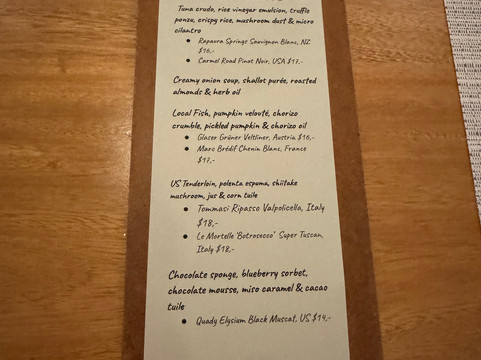 Tuna crudo, rice vinegar emulsion, truffle
ponzu, crispy rice, mushroom dust & micro
cilantro
● Rapaura Springs Sauvignon Blanc, NZ
$16,-
● Carmel Road Pinot Noir, USA $17,-
Creamy onion soup, shallot purée, roasted
almonds & herb oil
Local Fish, pumpkin velouté, chorizo
crumble, pickled pumpkin & chorizo oil
● Glaser Grüner Veltliner, Austria $16,-
● Marc Brédif Chenin Blanc, France
$17,-
US Tenderloin, polenta espuma, shiitake
mushroom, jus & corn tuile
● Tommasi Ripasso Valpolicella, Italy
$18,-
● Le Mortelle 'Botrosecco' Super Tuscan,
Italy $18,-
Chocolate sponge, blueberry sorbet,
chocolate mousse, miso caramel & cacao
tuile
● Quady Elysium Black Muscat, US $14,-